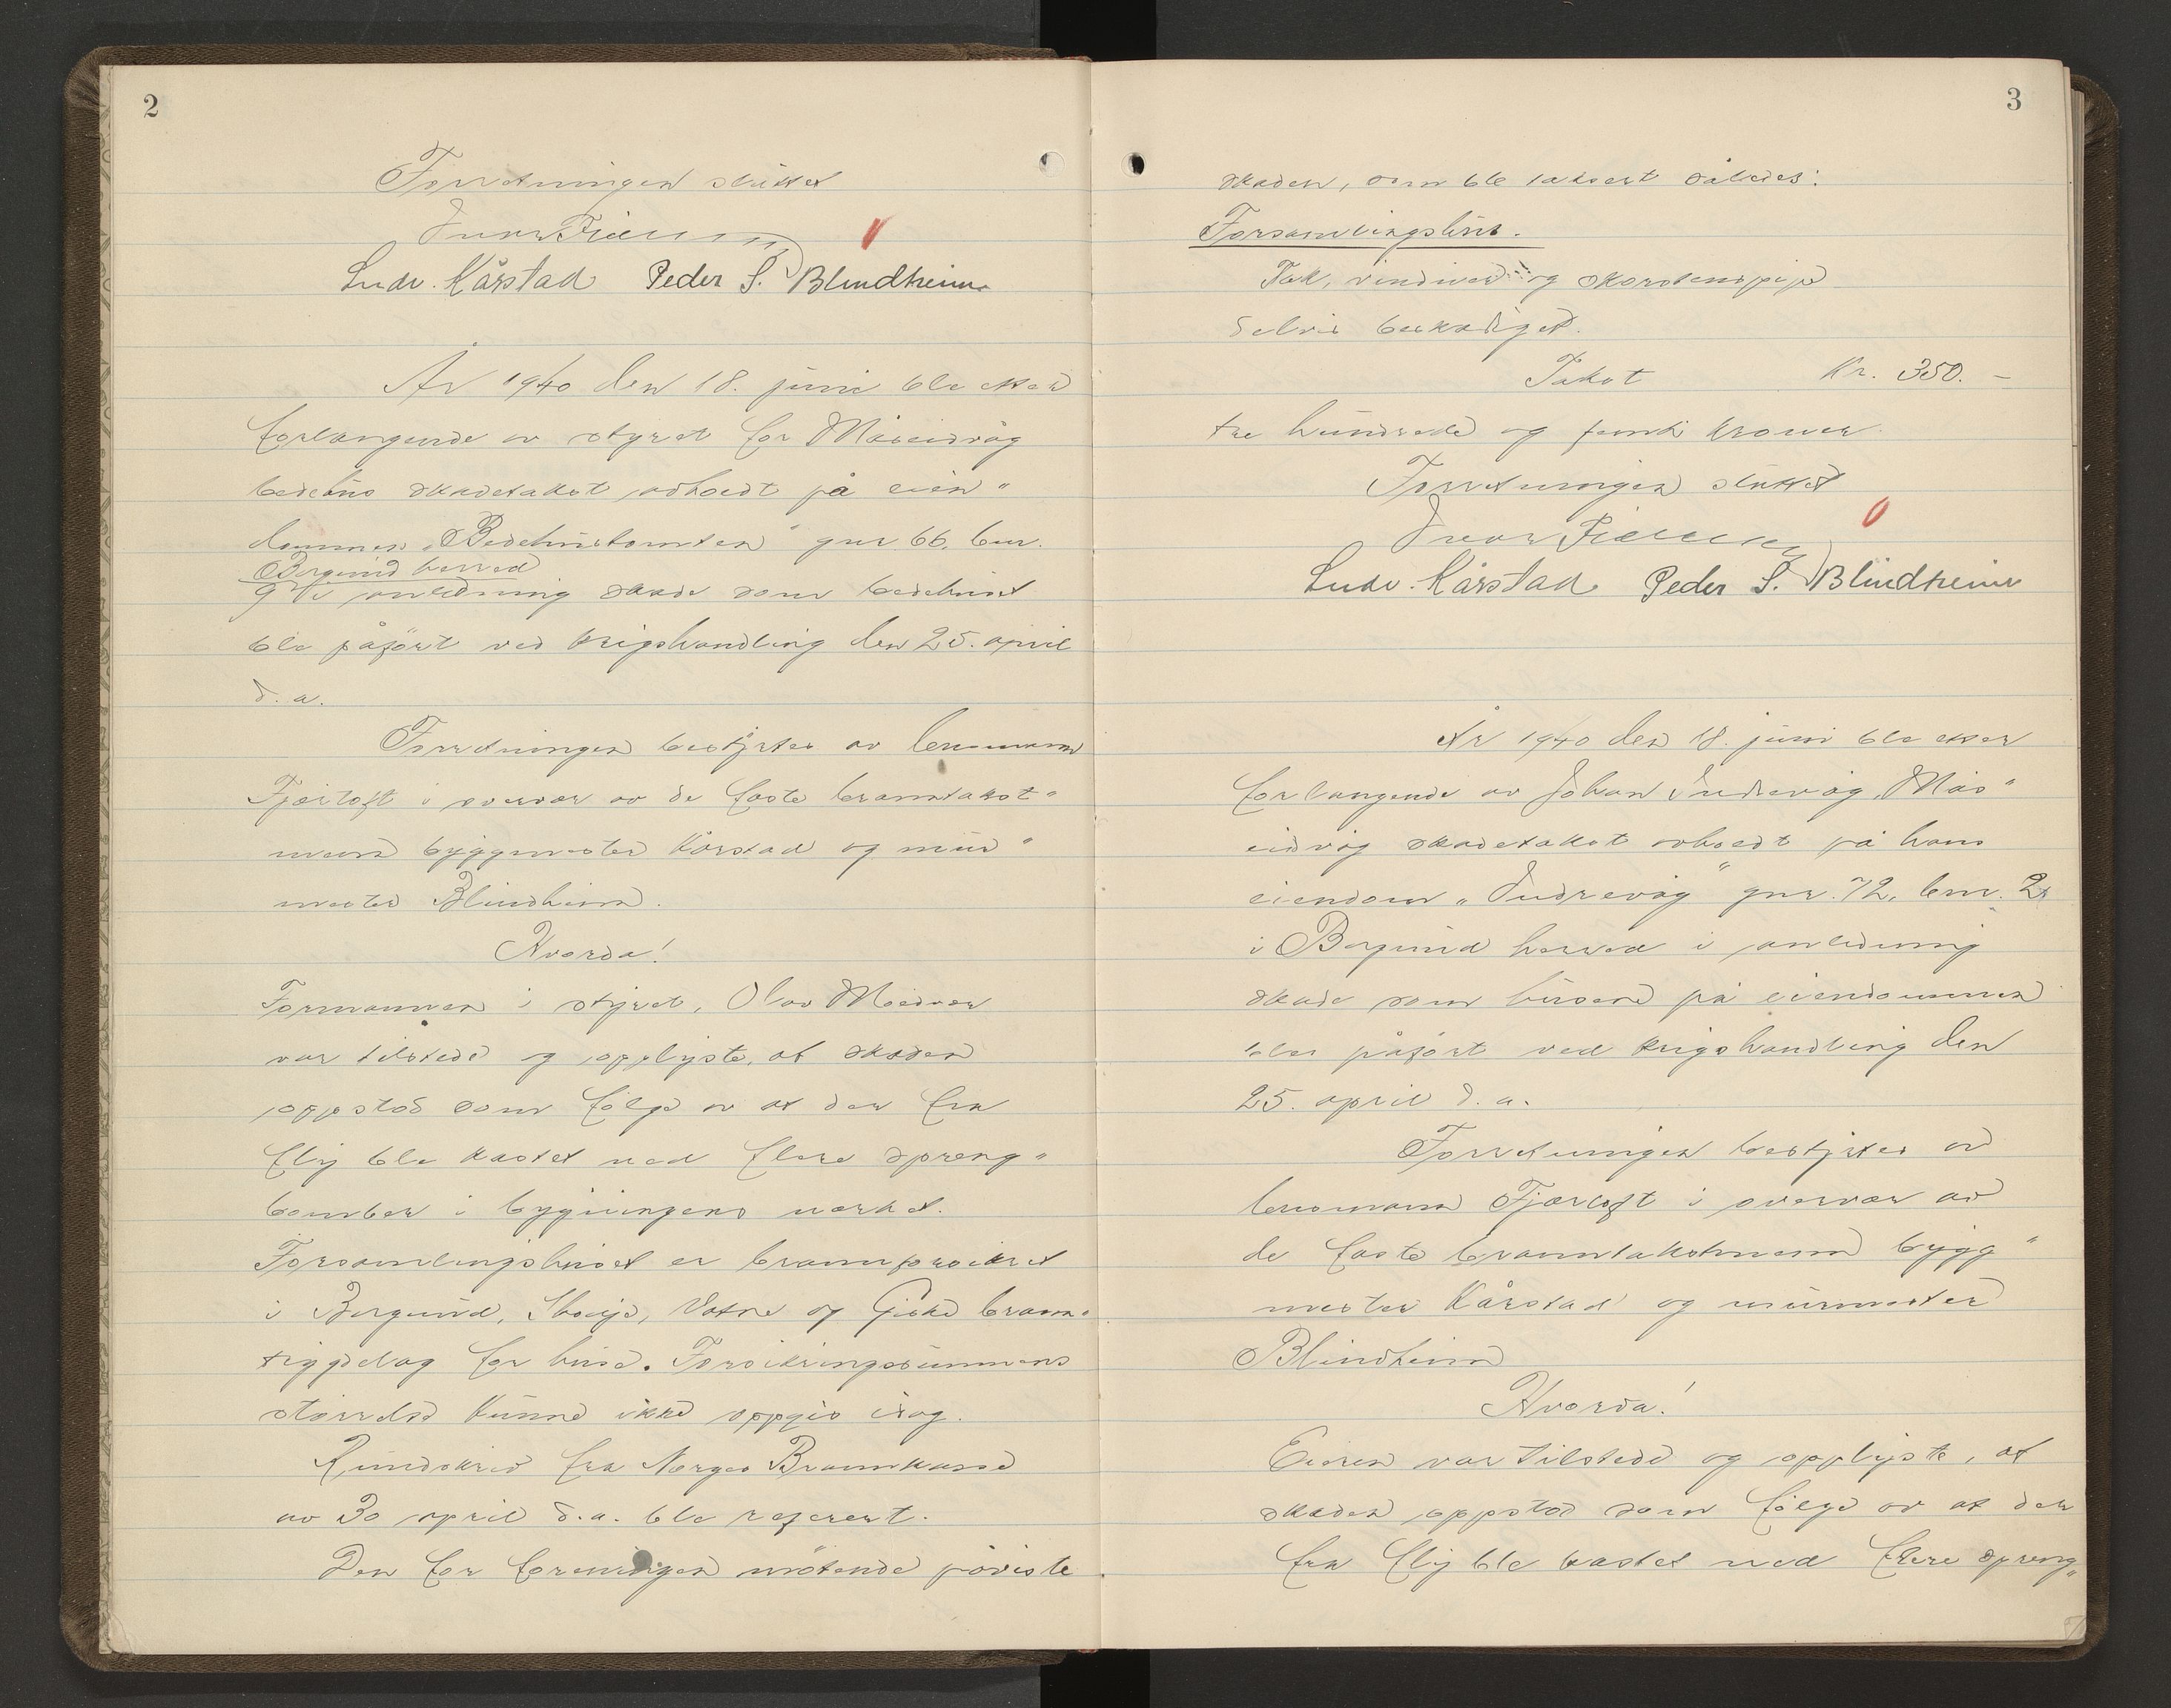 2
Forretningen sluttet
Ludv. Kårstad Peder S. Blindheim
År 1940 den 18. juni ble etter
forlangende av styret for Måseidvåg
bedehus skadetakst avholdt på eien"
dommen „Bedehustomten" gnr 66, bnr.
Borgund herred
9 i anledning skade som bedehuset
ble påført ved krigshandling den 25. april
d. a.
Forretningen bestyrtes av lensmann
Fjørtoft i overvær av de faste branntakst"
menn byggmester Kårstad og mur"
mester Blindheim.
Hvorda!
Formannen i styret, Olav
var tilstede og opplyste, at skaden
oppstod som følge av at der fra
fly ble kastet ned flere spreng"
bomber i bygningens nærhet.
Forsamlingshuset er brannforsikret
i Borgund, Skodje, Vatne og Giske brann"
trygdelag for huse. Forsikringssummens
størrelse kunne ikke oppgis idag.
Rundskriv fra Norges Brannkasse
av 30 april d.a. ble referert.
Den for foreningen møtende påviste
3
skaden, som ble taksert således:
Forsamlingshus.
Tak, vinduer og skorstenspipe
delvis beskadiget.
Takst Kr. 350. –
tre hundrede og femti kroner.
Forretningen sluttet
Ludv. Kårstad Peder S. Blindheim
År 1940 den 18. juni ble etter
forlangende av Johan Indrevåg, Mås"
eidvåg skadetakst avholdt på hans
eiendom „Indrevåg" gnr. 72, bnr. 2
i Borgund herred i anledning
skade som husene på eiendommen
ble påført ved krigshandling den
25. april d. a.
Forretningen bestyrtes av
lensmann Fjørtoft i overvær av
de faste branntakstmenn bygg"
mester Kårstad og murmester
Blindheim
Hvorda!
Eieren var tilstede og opplyste, at
skaden oppstod som følge av at der
fra fly ble kastet ned flere spreng"